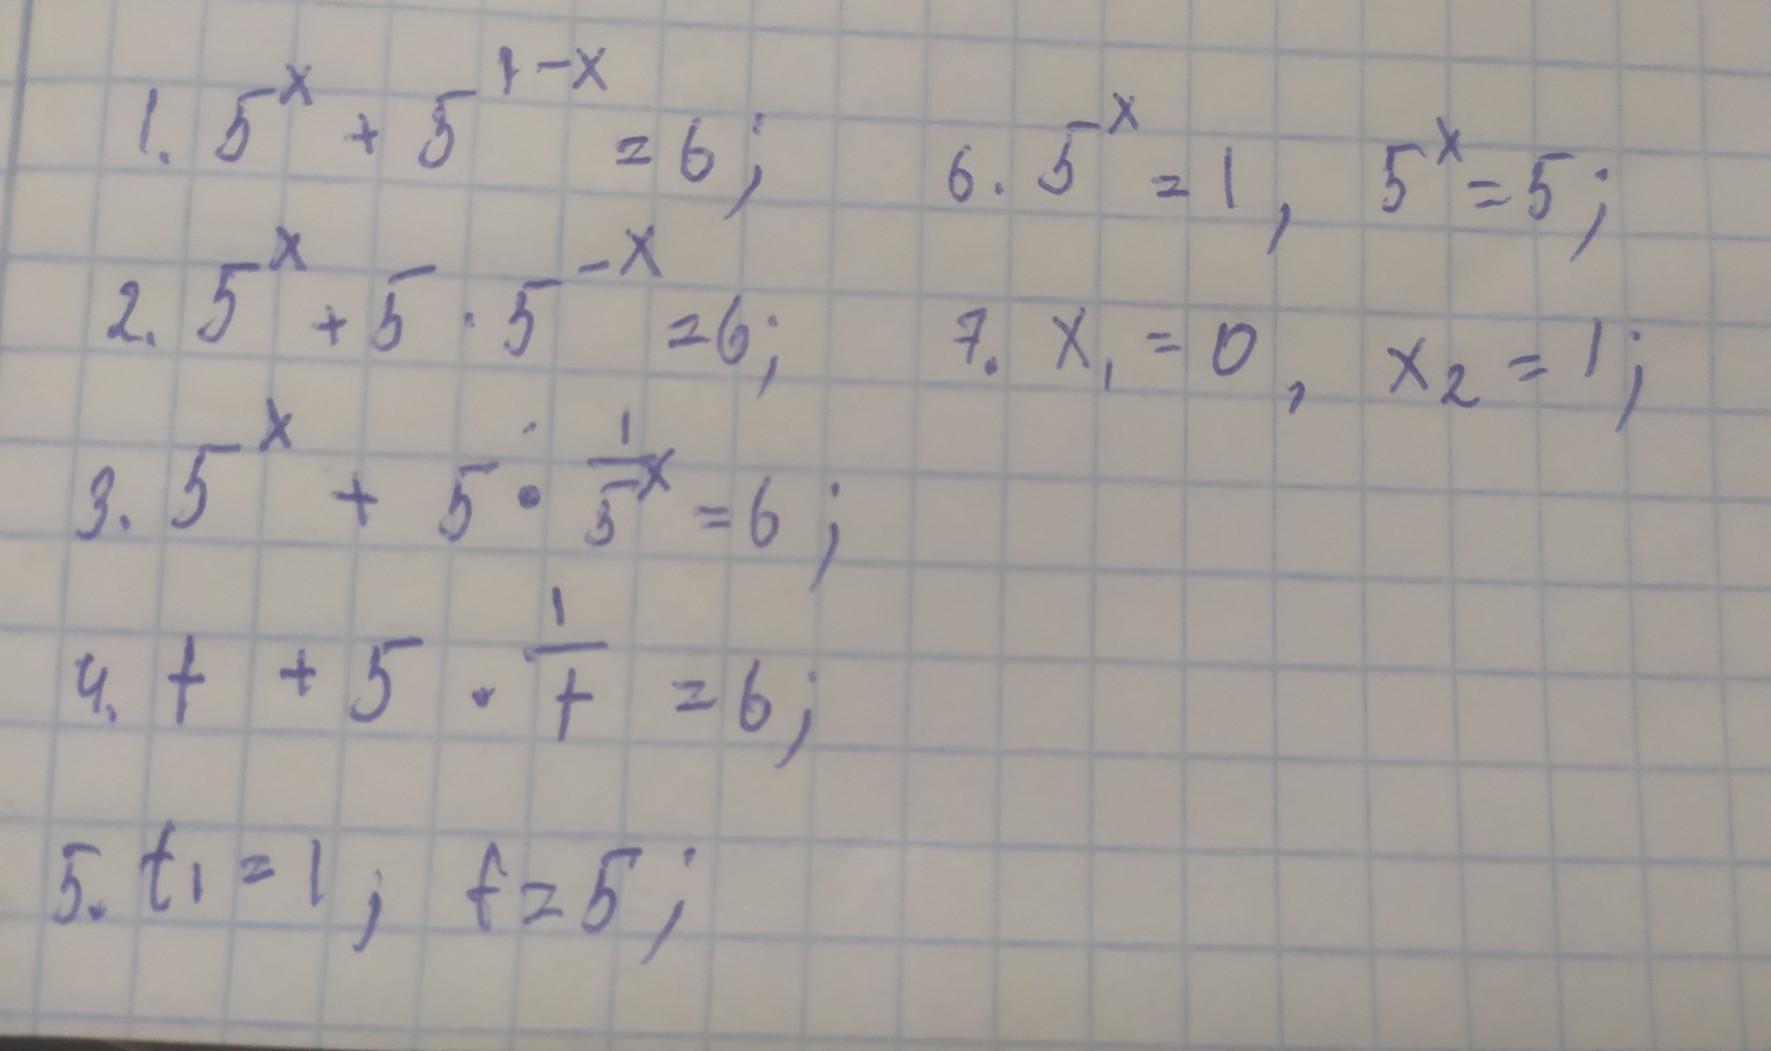 1. 5^x + 5^(1-x) = 6;
2. 5^x + 5 · 5^(-x) = 6;
3. 5^x + 5 · 1/5^x = 6;
4. t + 5 · 1/t = 6;
5. t₁ = 1; t = 5;
6. 5^x = 1, 5^x = 5;
7. x₁ = 0, x₂ = 1;